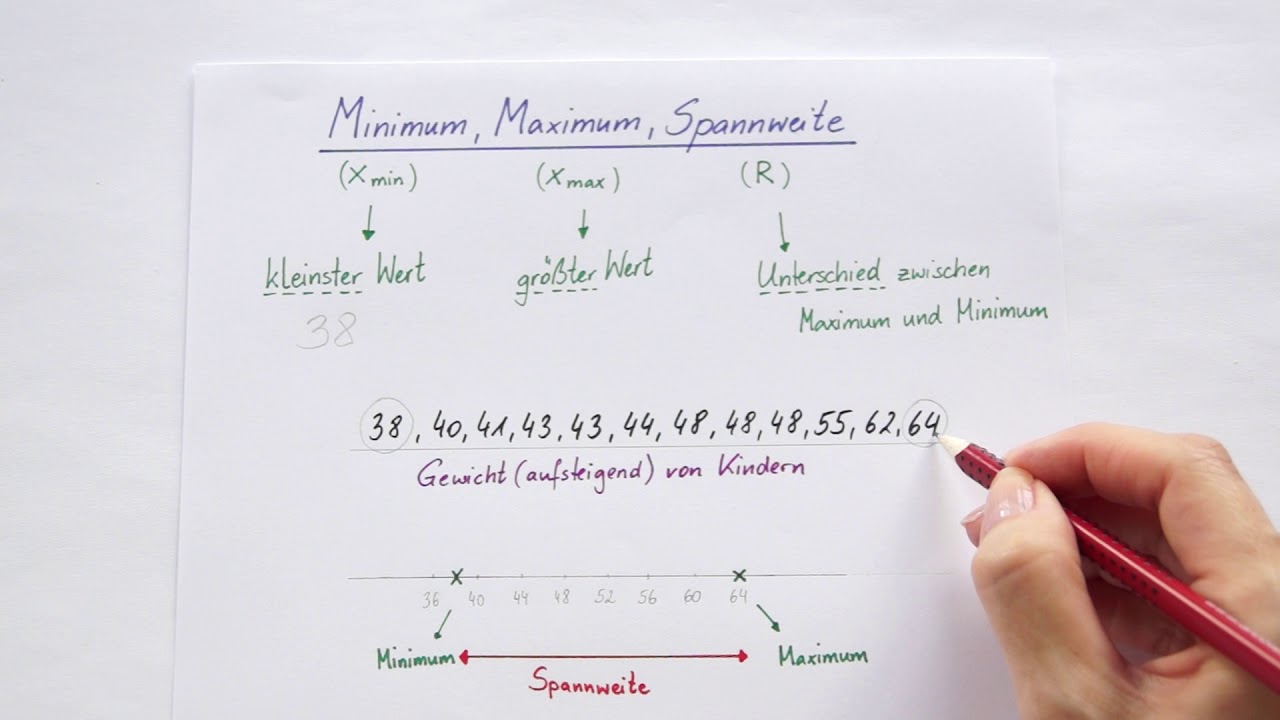 Minimum, Maximum, Spannweite
(Xmin) (Xmax) (R)
kleinster Wert größter Wert Unterschied zwischen
Maximum und Minimum
38
38, 40, 41, 43, 43, 44, 48, 48, 48, 55, 62, 64
Gewicht (aufsteigend) von Kindern
36 40 44 48 52 56 60 64
Minimum Maximum
Spannweite